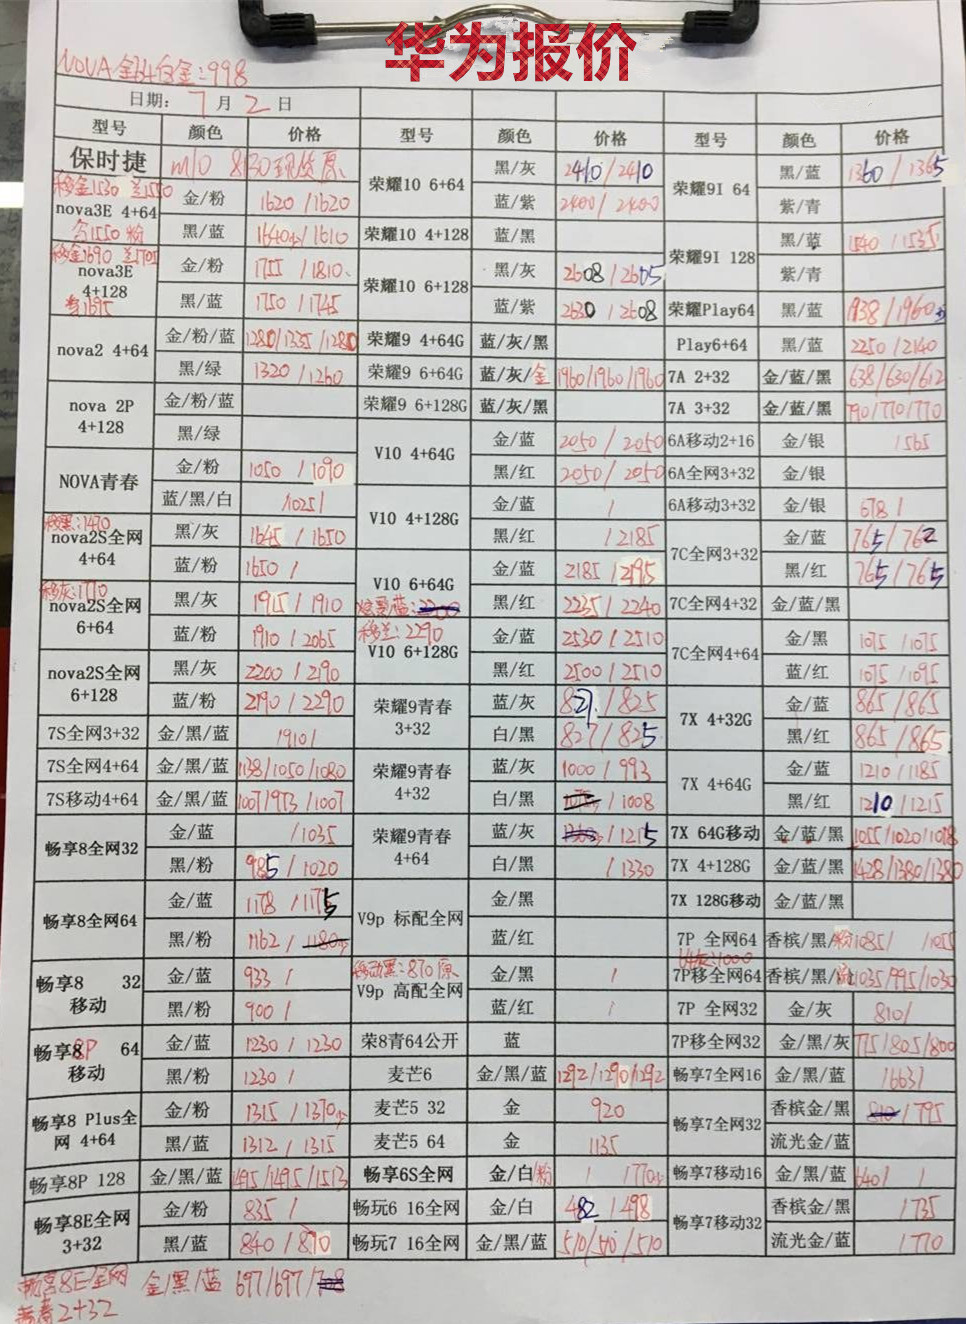 华为报价
NOVA全网白金:998
日期: 7 月 2 日
型号 颜色 价格 型号 颜色 价格 型号 颜色 价格
保时捷 m10 8130现货原
荣耀10 6+64 黑/灰 2410/2410
蓝/紫 2400/2400
荣耀9I 64 黑/蓝 1360/1365
紫/青
移金1530 兰1550
nova3E 4+64 金/粉 1620/1620
含1550 粉 黑/蓝 1640/1610
荣耀10 4+128 蓝/黑
荣耀9I 128 黑/蓝 1540/1535
紫/青
移金1690 兰1705
nova3E 4+128 金/粉 1755/1810
1695 黑/蓝 1750/1745
荣耀10 6+128 黑/灰 2608/2605
蓝/紫 2630/2608
荣耀Play64 黑/蓝 1938/1960
nova2 4+64 金/粉/蓝 1280/1335/1280
黑/绿 1320/1260
荣耀9 4+64G 蓝/灰/黑
Play6+64 黑/蓝 2250/2140
荣耀9 6+64G 蓝/灰/金 1960/1960/1960
7A 2+32 金/蓝/黑 638/630/612
nova 2P 4+128 金/粉/蓝
黑/绿
荣耀9 6+128G 蓝/灰/黑
7A 3+32 金/蓝/黑 790/770/770
V10 4+64G 金/蓝 2050/2050
黑/红 2050/2050
6A移动2+16 金/银 1565
6A全网3+32 金/银
NOVA青春 金/粉 1050/1090
蓝/黑/白 /1025/
V10 4+128G 金/蓝 /
黑/红 /2185
6A移动3+32 金/银 678/
7C全网3+32 金/蓝 765/762
黑/红 765/765
移黑:1470
nova2S全网 4+64 黑/灰 1645/1650
蓝/粉 1650/
V10 6+64G 金/蓝 2185/2295
黑/红 2235/2240
7C全网4+32 金/蓝/黑
移灰:1770
nova2S全网 6+64 黑/灰 1915/1910
蓝/粉 1910/2065
移兰:2290
V10 6+128G 金/蓝 2530/2510
黑/红 2500/2510
7C全网4+64 金/黑 1075/1075
蓝/红 1075/1095
nova2S全网 6+128 黑/灰 2200/2290
蓝/粉 2190/2290
荣耀9青春 3+32 蓝/灰 821/825
白/黑 827/825
7X 4+32G 金/蓝 865/865
黑/红 865/865
7S全网3+32 金/黑/蓝 /910/
7S全网4+64 金/黑/蓝 1138/1050/1080
荣耀9青春 4+32 蓝/灰 1000/993
白/黑 /1008
7X 4+64G 金/蓝 1210/1185
黑/红 1210/1215
7S移动4+64 金/黑/蓝 1007/973/1007
畅享8全网32 金/蓝 /1035
黑/粉 985/1020
荣耀9青春 4+64 蓝/灰 /1215
白/黑 /1330
7X 64G移动 金/蓝/黑 1055/1020/1018
7X 4+128G 金/蓝/黑 1428/1380/1380
畅享8全网64 金/蓝 1178/1175
黑/粉 1162/1180
V9p 标配全网 金/黑
蓝/红
7X 128G移动 金/蓝/黑
7P 全网64 香槟/黑/粉 1085/ /1055
畅享8 32 移动 金/蓝 933/
黑/粉 900/
移动黑:870原
V9p 高配全网 金/黑 /
蓝/红 /
7P移全网64 香槟/黑/ 1035/995/1030
7P 全网32 金/灰 810/
畅享8P 64 移动 金/蓝 1230/1230
黑/粉 1230/
荣8青64公开 蓝
7P移全网32 金/黑/灰 775/805/800
麦芒6 金/黑/蓝 1292/1290/1292
畅享7全网16 金/黑/蓝 /663/
畅享8 Plus全网 4+64 金/粉 1315/1370
黑/蓝 1312/1315
麦芒5 32 金 920
麦芒5 64 金 1135
畅享7全网32 香槟金/黑 810/795
流光金/蓝
畅享8P 128 金/黑/蓝 1495/1495/1513
畅享6S全网 金/白/粉 / /770
畅享7移动16 金/黑/蓝 640/ /
畅享8E全网 3+32 金/粉 835/
黑/蓝 840/870
畅玩6 16全网 金/白 482/498
畅玩7 16全网 金/黑/蓝 510/510/510
畅享7移动32 香槟金/黑 /735
流光金/蓝 /770
畅享8E全网 金/黑/蓝 697/697/708
青春2+32